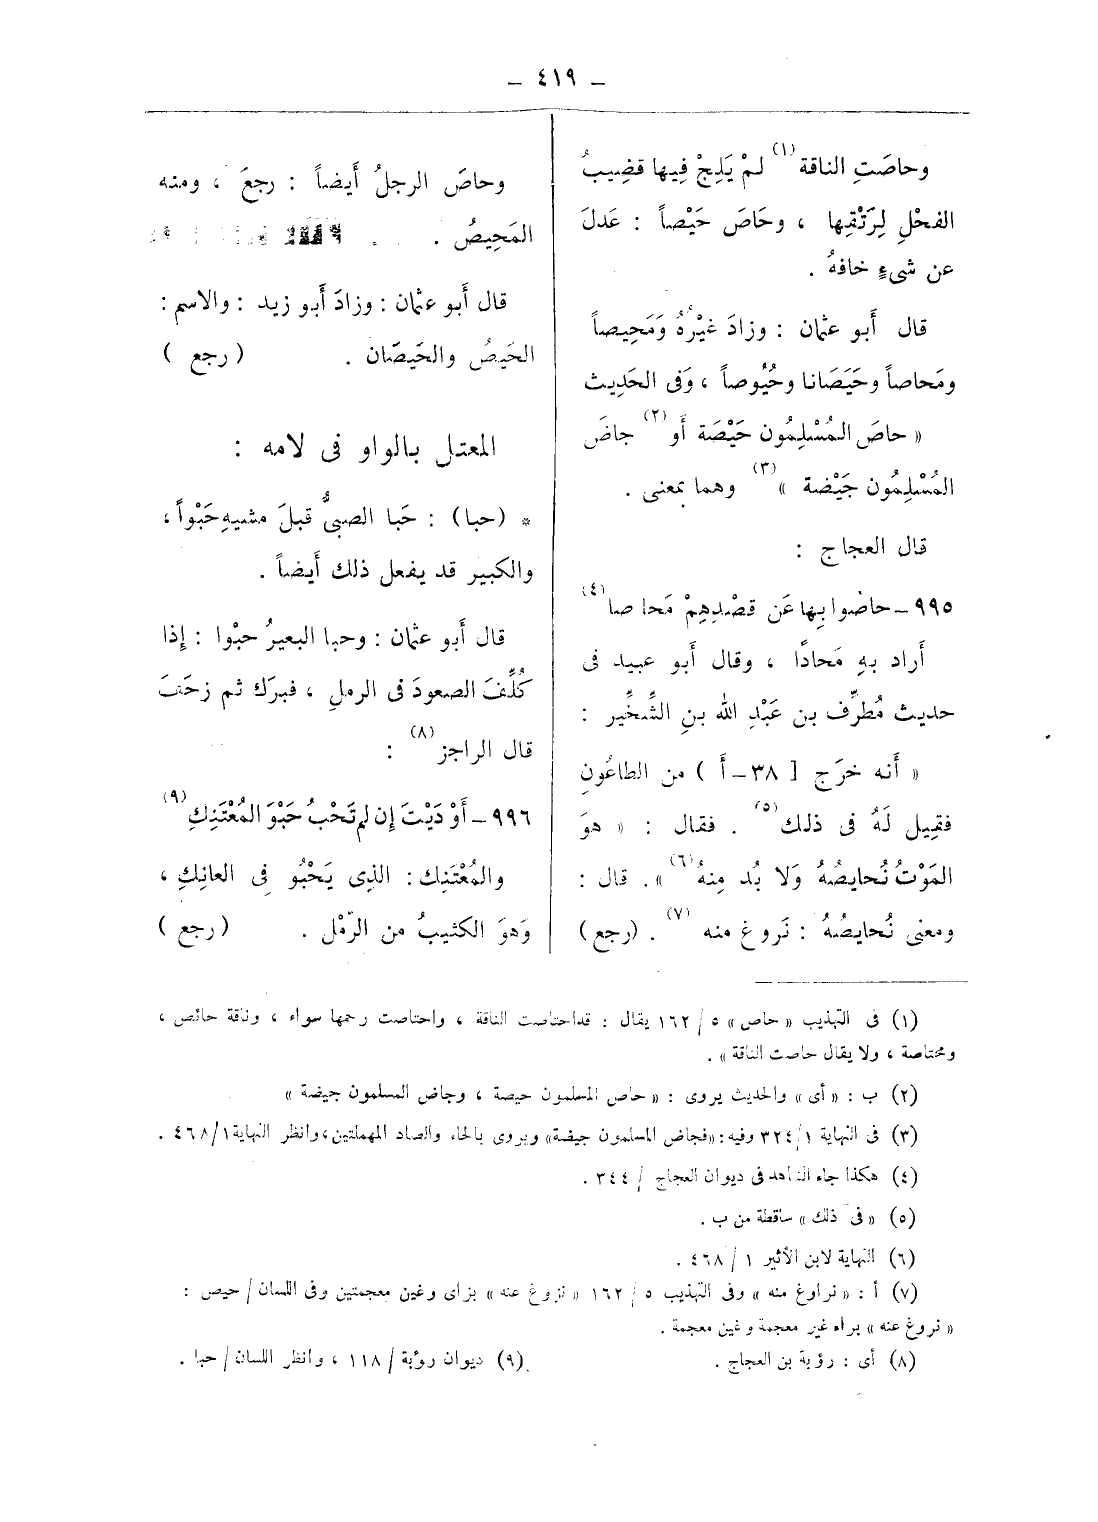 – ٤١٩ –
وحاصَتِ الناقة (١) لمْ يَلِجْ فِيها قضِيبُ
الفحْلِ لِرَتْقِها ، وحَاصَ حَيْصاً : عَدلَ
عن شىءٍ خافهُ .
قال أَبو عثمان : وزادَ غيْرُهُ وَمَحِيصاً
ومَحاصاً وحَيَصَانا وحُيُوصاً ، وَفى الحَدِيث
« حاصَ المُسْلِمُون حَيْصَة أَو (٢) جاضَ
المُسْلِمُون جَيْضة » (٣) وهما بمعنى .
قال العجاج :
٩٩٥ – حاصُوا بِها عَن قصْدِهِمْ مَحاصا (٤)
أَراد بهِ مَحادًا ، وقال أَبو عبيد فى
حديث مُطرِّف بن عَبْدِ الله بنِ الشِّخِّير :
« أَنه خرَج [ ٣٨ – أَ ) من الطاعُونِ
فقِيل لَهُ فى ذلك (٥) . فقال : « هوَ
المَوْتُ نُحايصُهُ وَلا بُد مِنهُ (٦) » . قال :
ومعنى نُحايصُهُ : نَروغ منه (٧) . (رجع)
وحاصَ الرجلُ أَيضاً : رجعَ ، ومنه
المَحِيصُ .
قال أَبو عثمان : وزادَ أَبو زيد : والاسم :
الحَيصُ والحَيصَان . ( رجع )
المعتل بالواو فى لامه :
* (حبا) : حَبا الصبىُّ قبلَ مشيهِ حَبْواً ،
والكبير قد يفعل ذلك أَيضاً .
قال أَبو عثمان : وحبا البعيرُ حبْوا : إِذا
كُلِّفَ الصعودَ فى الرملِ ، فبرَك ثم زحَفَ
قال الراجز (٨) :
٩٩٦ – أَوْ دَيْتَ إِن لم تَحْبُ حَبْوَ المُعْتَنِكِ (٩)
والمُعْتَنِك : الذِى يَحْبُو فِى العانِكِ ،
وَهوَ الكثيبُ من الرّمْل . ( رجع )
(١) فى التهذيب « حاص » ٥ / ١٦٢ يقال : قداحتاصت الناقة ، واحتاصت رحمها سواء ، وناقة حائص ،
ومحتاصة ، ولا يقال حاصت الناقة » .
(٢) ب : « أى » والحديث يروى : « حاص المسلمون حيصة ، وجاض المسلمون جيضة »
(٣) فى النهاية ١/ ٣٢٤ وفيه : «فجاض المسلمون جيضة» ويروى بالحاء والصاد المهملتين ، وانظر النهاية ١/ ٤٦٨ .
(٤) هكذا جاء الشاهد فى ديوان العجاج / ٣٤٤ .
(٥) « فى ذلك » ساقطة من ب .
(٦) النهاية لابن الأثير ١ / ٤٦٨ .
(٧) أ : « نراوغ منه » وفى التهذيب ٥ / ١٦٢ « نزوغ عنه » بزاى وغين معجمتين وفى اللسان / حيص :
« نروغ عنه » براء غير معجمة وغين معجمة .
(٨) أى : رؤبة بن العجاج .
(٩) ديوان رؤبة / ١١٨ ، وانظر اللسان / حبا .